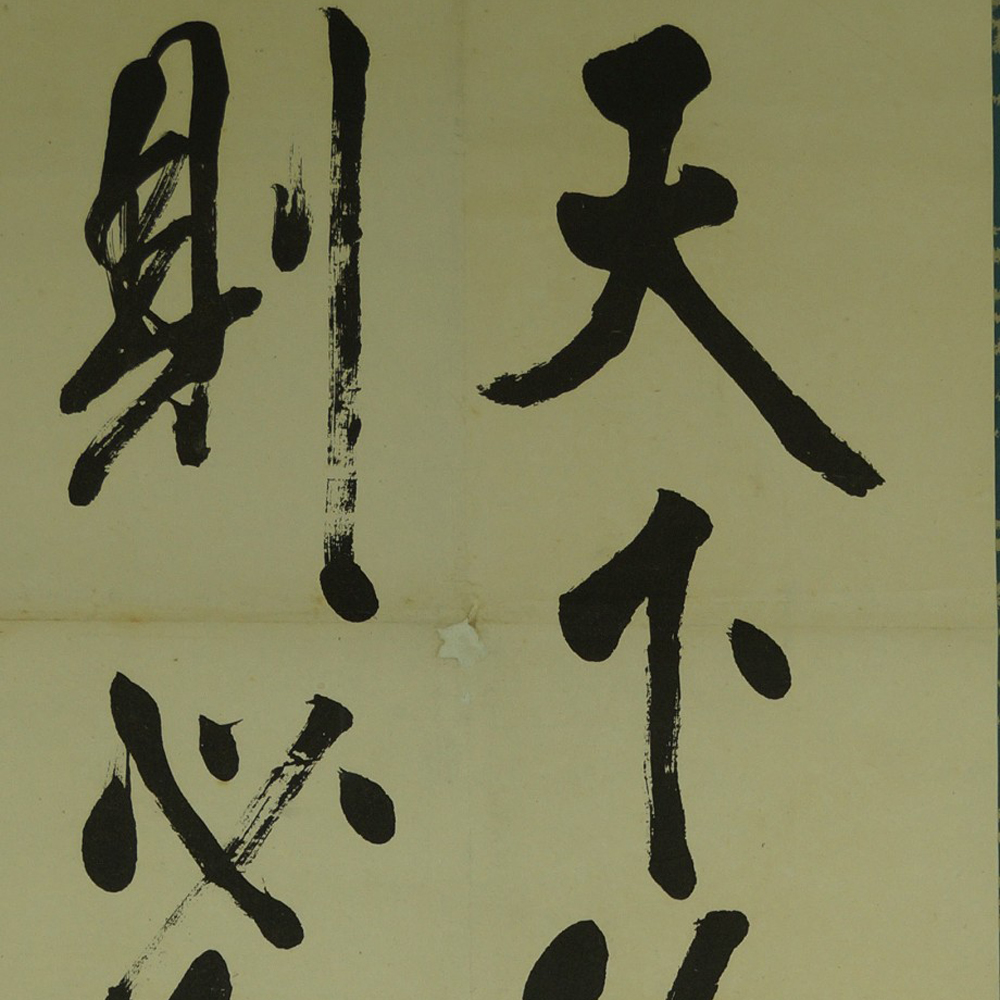 天下
則必